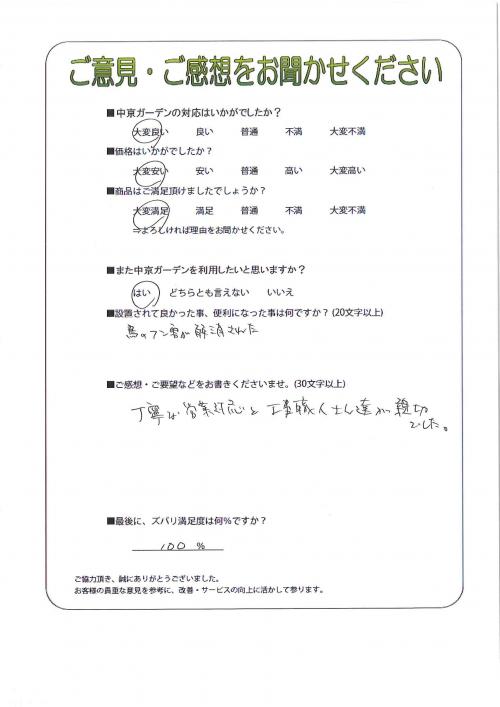 ご意見・ご感想をお聞かせください
■中京ガーデンの対応はいかがでしたか？
大変良い 良い 普通 不満 大変不満
■価格はいかがでしたか？
大変安い 安い 普通 高い 大変高い
■商品はご満足頂けましたでしょうか？
大変満足 満足 普通 不満 大変不満
⇒よろしければ理由をお聞かせください。
■また中京ガーデンを利用したいと思いますか？
はい どちらとも言えない いいえ
■設置されて良かった事、便利になった事は何ですか？(20文字以上)
鳥のフン害が解消された
■ご感想・ご要望などをお書きくださいませ。(30文字以上)
丁寧な営業対応と工事職人さん達が親切
でした。
■最後に、ズバリ満足度は何％ですか？
100 %
ご協力頂き、誠にありがとうございました。
お客様の貴重な意見を参考に、改善・サービスの向上に活かして参ります。